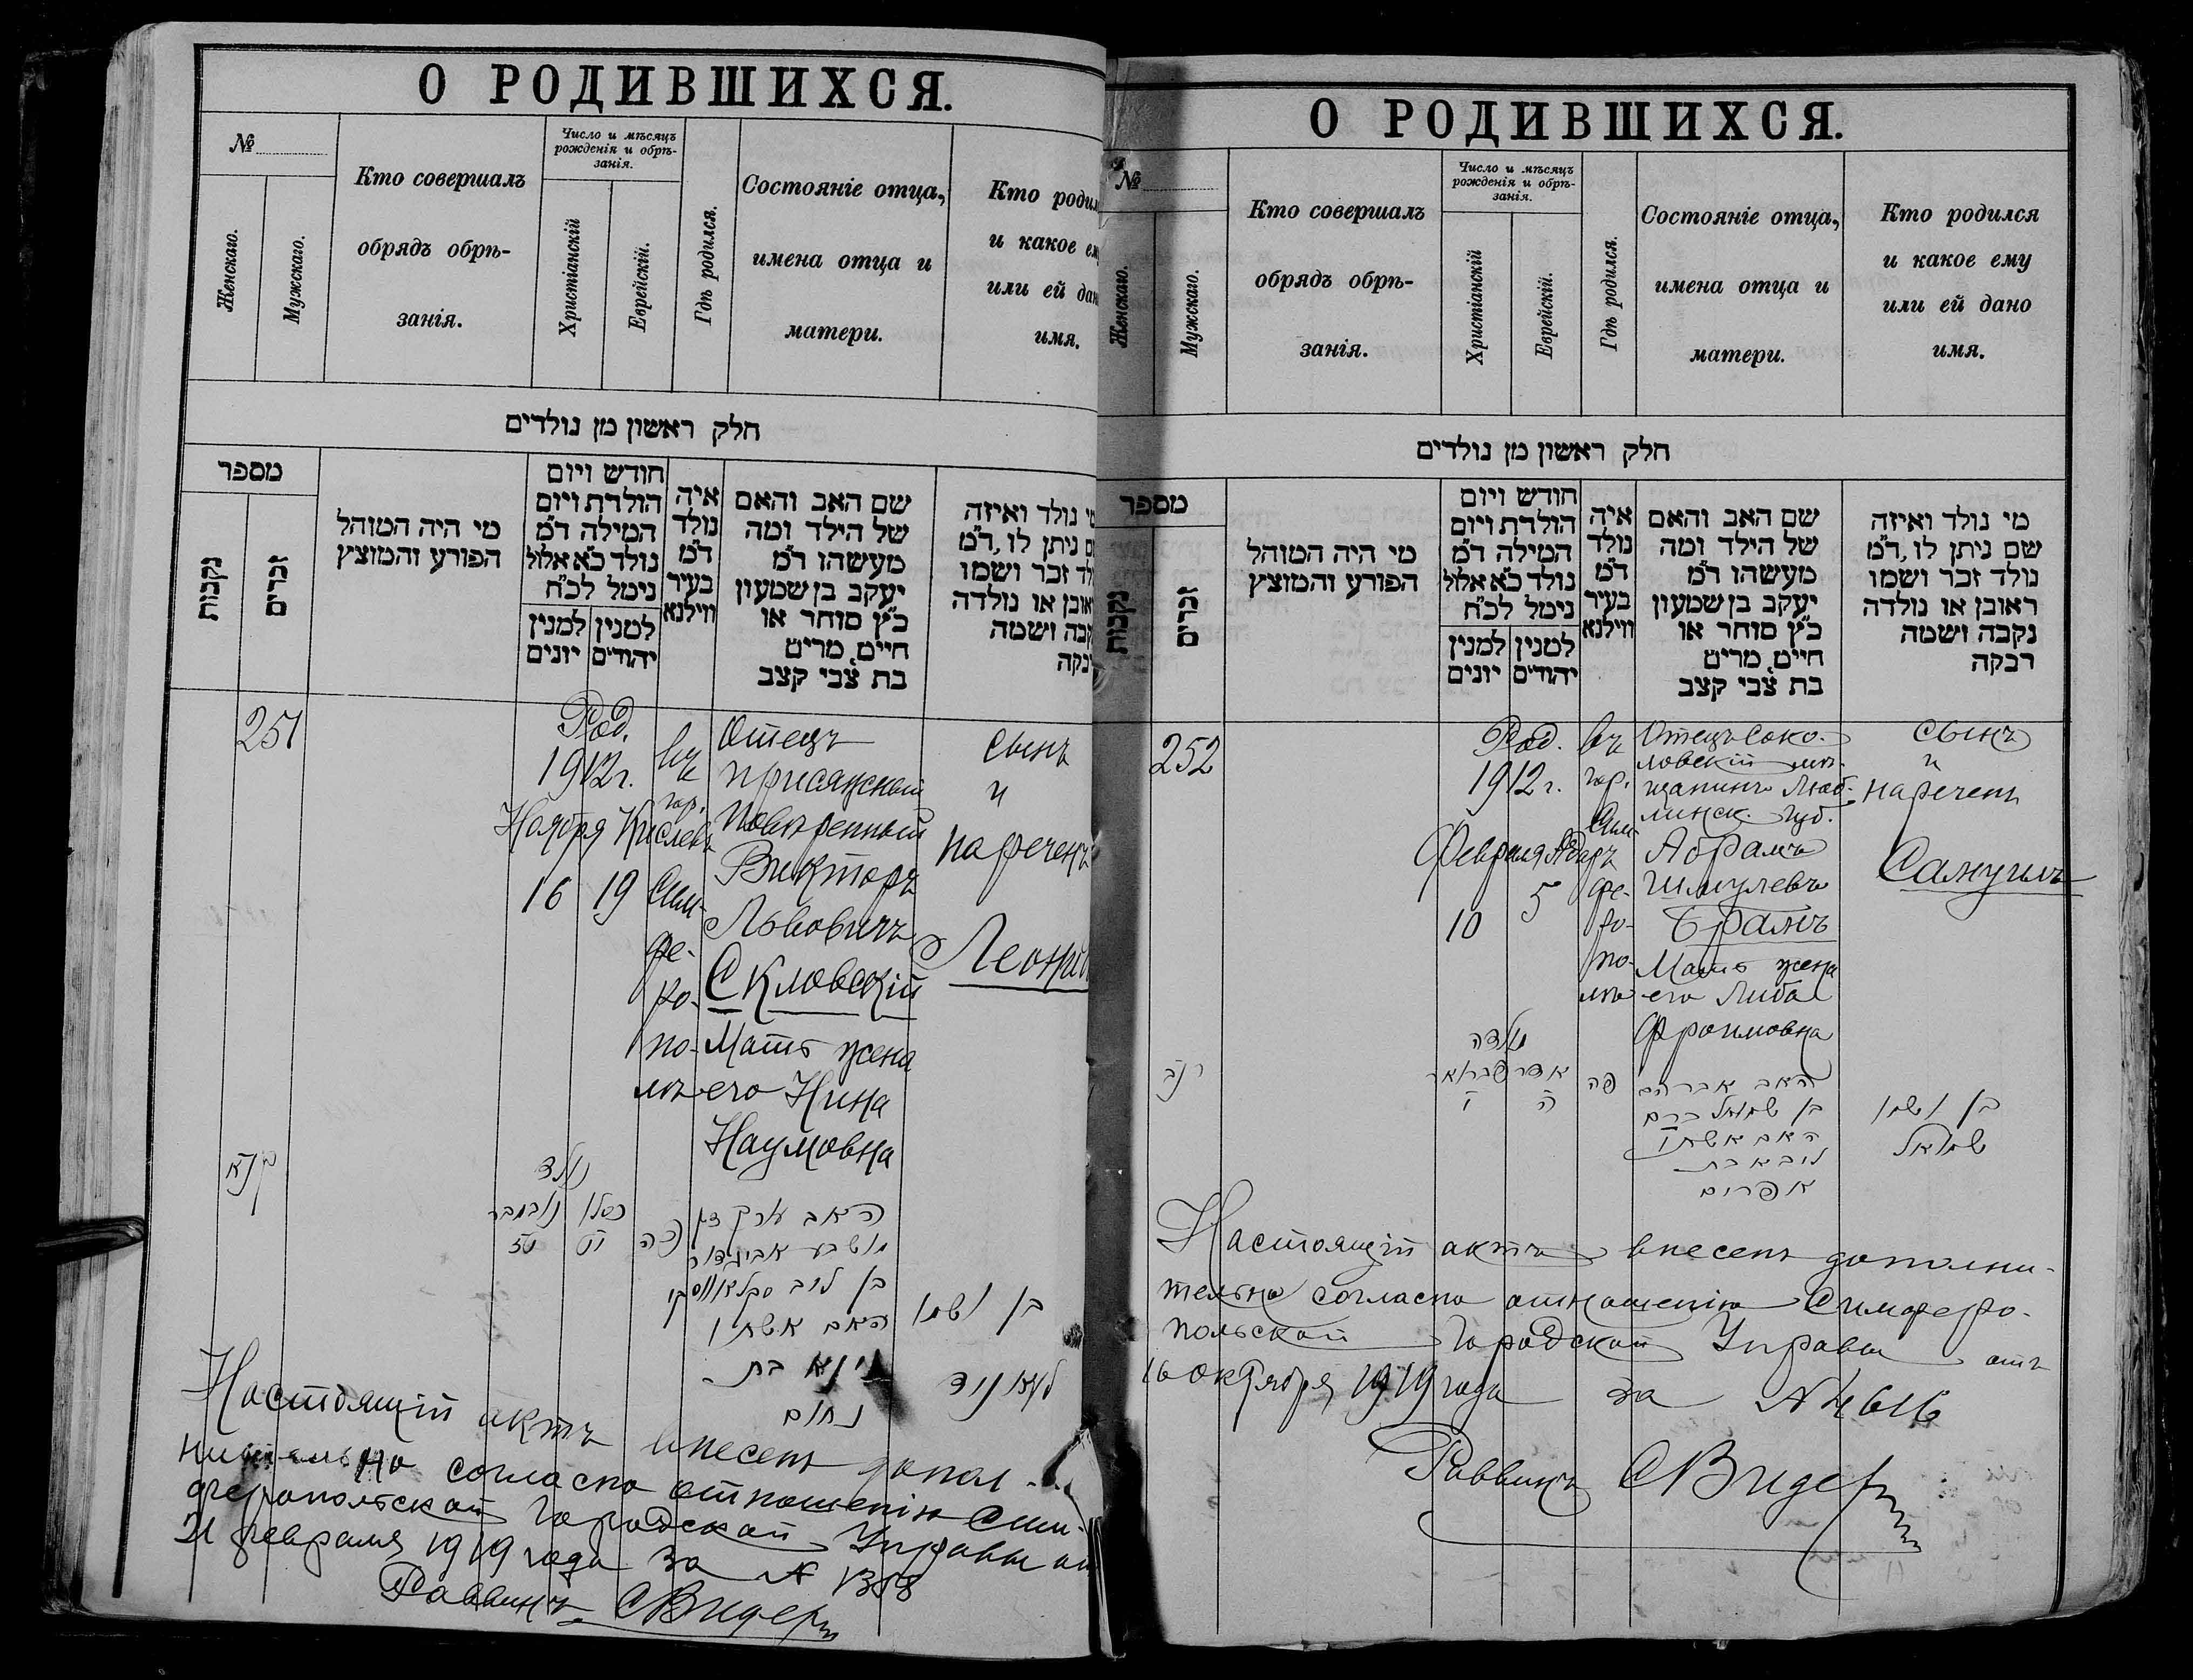 О РОДИВШИХСЯ.
№
Женскаго.
Мужскаго.
Кто совершалъ
обрядъ обрѣ-
занія.
Число и мѣсяцъ
рожденія и обрѣ-
занія.
Христіанскій
Еврейскій.
Гдѣ родился.
Состояніе отца,
имена отца и
матери.
Кто родил
и какое ем
или ей дан
имя.
חלק ראשון מן נולדים
מספר
נקבות
זכרים
מי היה המוהל
הפורע והמוצץ
חודש ויום
הולדת ויום
המילה ד״מ
נולד כ״א אלול
נימל לכ״ח
למנין יהודים
למנין יונים
איה
נולד
ד״מ
בעיר
ווילנא
שם האב והאם
של הילד ומה
מעשהו ד״מ
יעקב בן שמעון
כ״ץ סוחר או
חיים, מרים
בת צבי קצב
מי נולד ואיזה
שם ניתן לו, ד״מ
ולד זכר ושמו
ראובן או נולדה
נקבה ושמה
רבקה
251
Род.
1912 г.
Ноября
16
Кислевъ
19
въ
гор.
Сим-
фе-
ро-
по-
лѣ
Отецъ
присяжный
повѣренный
Викторъ
Львовичъ
Скловскій
Мать жена
его Нина
Наумовна
сынъ
и
нареченъ
Леонид
רנא
נולד
נובמבר
טז
כסלו
יט
פה
האב עורך דין
מושבע אביגדור
בן לוב סקלאווסקי
האם אשתו
נינא בת
נחום
בן ושמו
לעאניד
Настоящій актъ внесенъ допол-
нительно согласно отношенію Сим-
феропольской Городской Управы от
21 февраля 1919 года за № 1358
Раввинъ СВидер
О РОДИВШИХСЯ.
№
Женскаго.
Мужскаго.
Кто совершалъ
обрядъ обрѣ-
занія.
Число и мѣсяцъ
рожденія и обрѣ-
занія.
Христіанскій
Еврейскій.
Гдѣ родился.
Состояніе отца,
имена отца и
матери.
Кто родился
и какое ему
или ей дано
имя.
חלק ראשון מן נולדים
מספר
נקבות
זכרים
מי היה המוהל
הפורע והמוצץ
חודש ויום
הולדת ויום
המילה ד״מ
נולד כ״א אלול
נימל לכ״ח
למנין יהודים
למנין יונים
איה
נולד
ד״מ
בעיר
ווילנא
שם האב והאם
של הילד ומה
מעשהו ד״מ
יעקב בן שמעון
כ״ץ סוחר או
חיים, מרים
בת צבי קצב
מי נולד ואיזה
שם ניתן לו, ד״מ
נולד זכר ושמו
ראובן או נולדה
נקבה ושמה
רבקה
252
Род.
1912 г.
Февраля
10
Адаръ
5
въ
гор.
Сим-
фе-
ро-
по-
лѣ
Отецъ Соко-
ловскій мѣ-
щанинъ Люб-
линск. губ.
Абрамъ
Шмулевъ
Брамъ
Мать жена
его Либа
Фроимовна
сынъ
и
нареченъ
Самуилъ
רנב
פברואר
י
אדר
ה
פה
האב אברהם
בן שמואל ברם
האם אשתו
ליבא בת
אפרים
בן ושמו
שמואל
Настоящій актъ внесенъ дополни-
тельно согласно отношенію Симферо-
польской Городской Управы отъ
16 Октября 1919 года за № 4616
Раввинъ СВидер